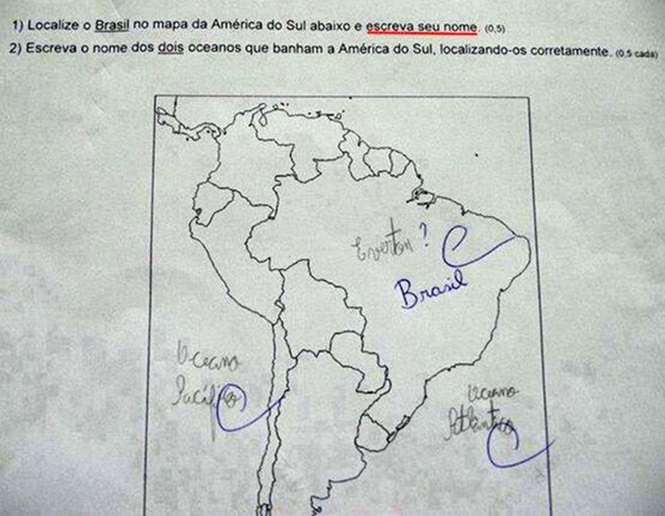 1) Localize o Brasil no mapa da América do Sul abaixo e escreva seu nome. (0,5)
2) Escreva o nome dos dois oceanos que banham a América do Sul, localizando-os corretamente. (0,5 cada)
Everton?
Brasil
Oceano
Pacífico
Oceano
Atlântico